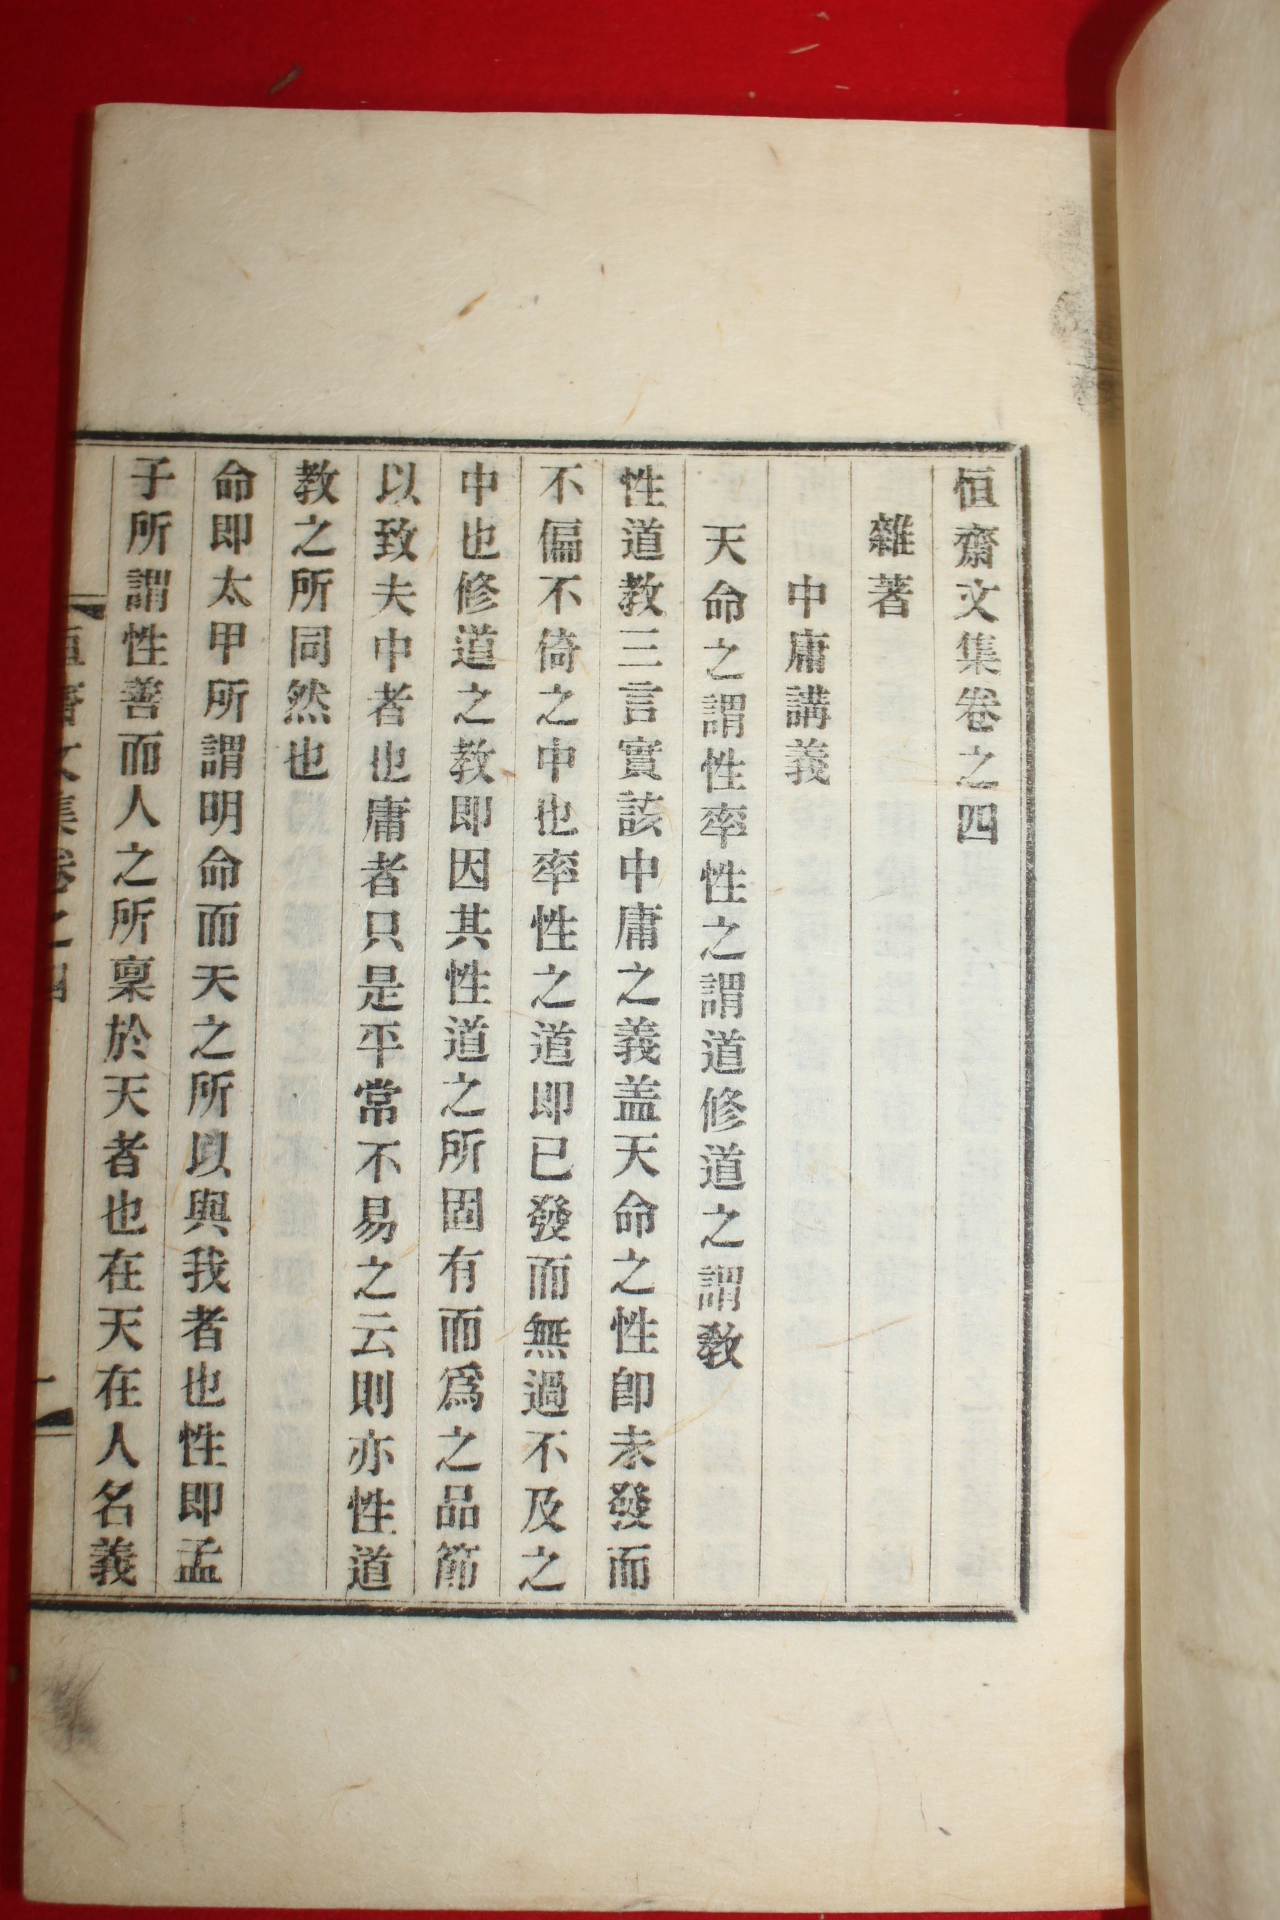 恒齋文集卷之四
雜著
中庸講義
天命之謂性率性之謂道修道之謂敎
性道敎三言實該中庸之義盖天命之性卽未發而
不偏不倚之中也率性之道卽已發而無過不及之
中也修道之敎卽因其性道之所固有而爲之品節
以致夫中者也庸者只是平常不易之云則亦性道
敎之所同然也
命卽太甲所謂明命而天之所以與我者也性卽孟
子所謂性善而人之所稟於天者也在天在人名義
恒齋文集卷之四
一